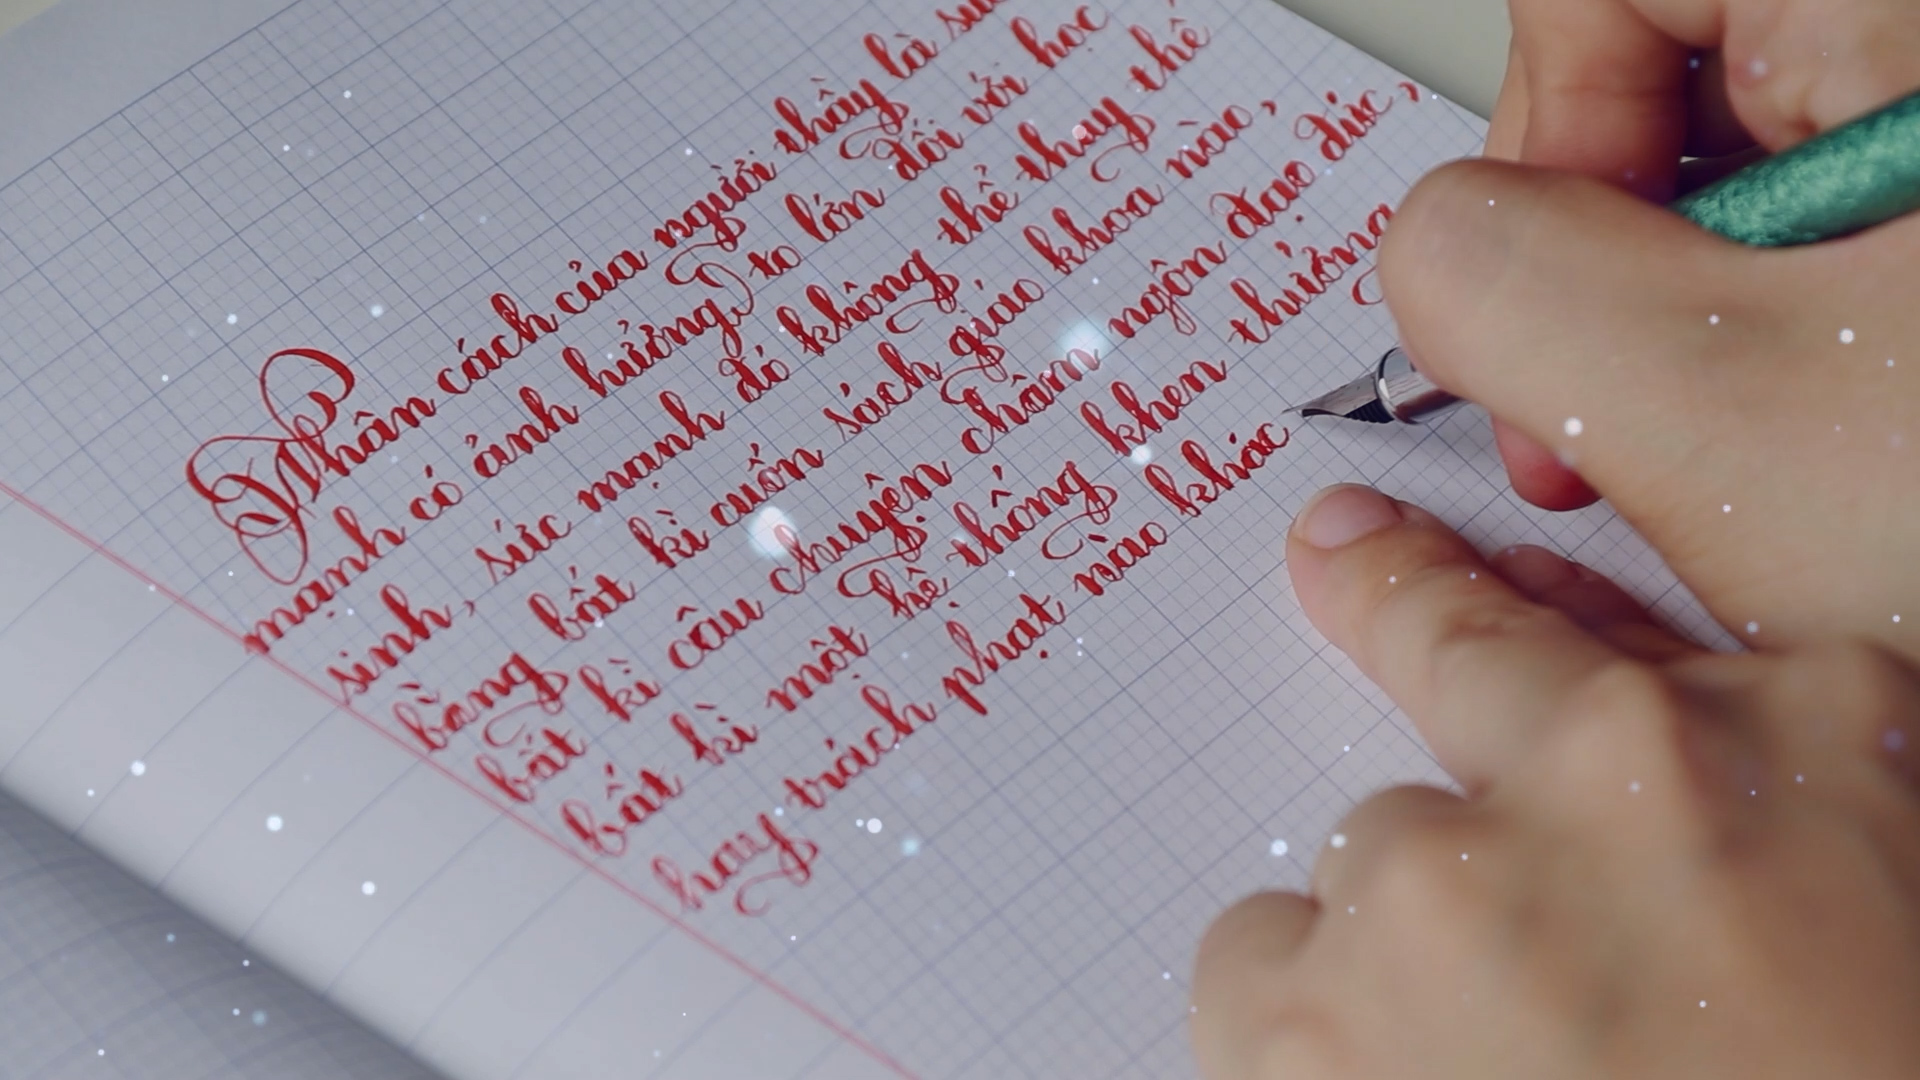 Nhân cách của người thầy là sức
mạnh có ảnh hưởng to lớn đối với học
sinh, sức mạnh đó không thể thay thế
bằng bất kì cuốn sách giáo khoa nào,
bất kì câu chuyện châm ngôn đạo đức,
bất kì một hệ thống khen thưởng
hay trách phạt nào khác